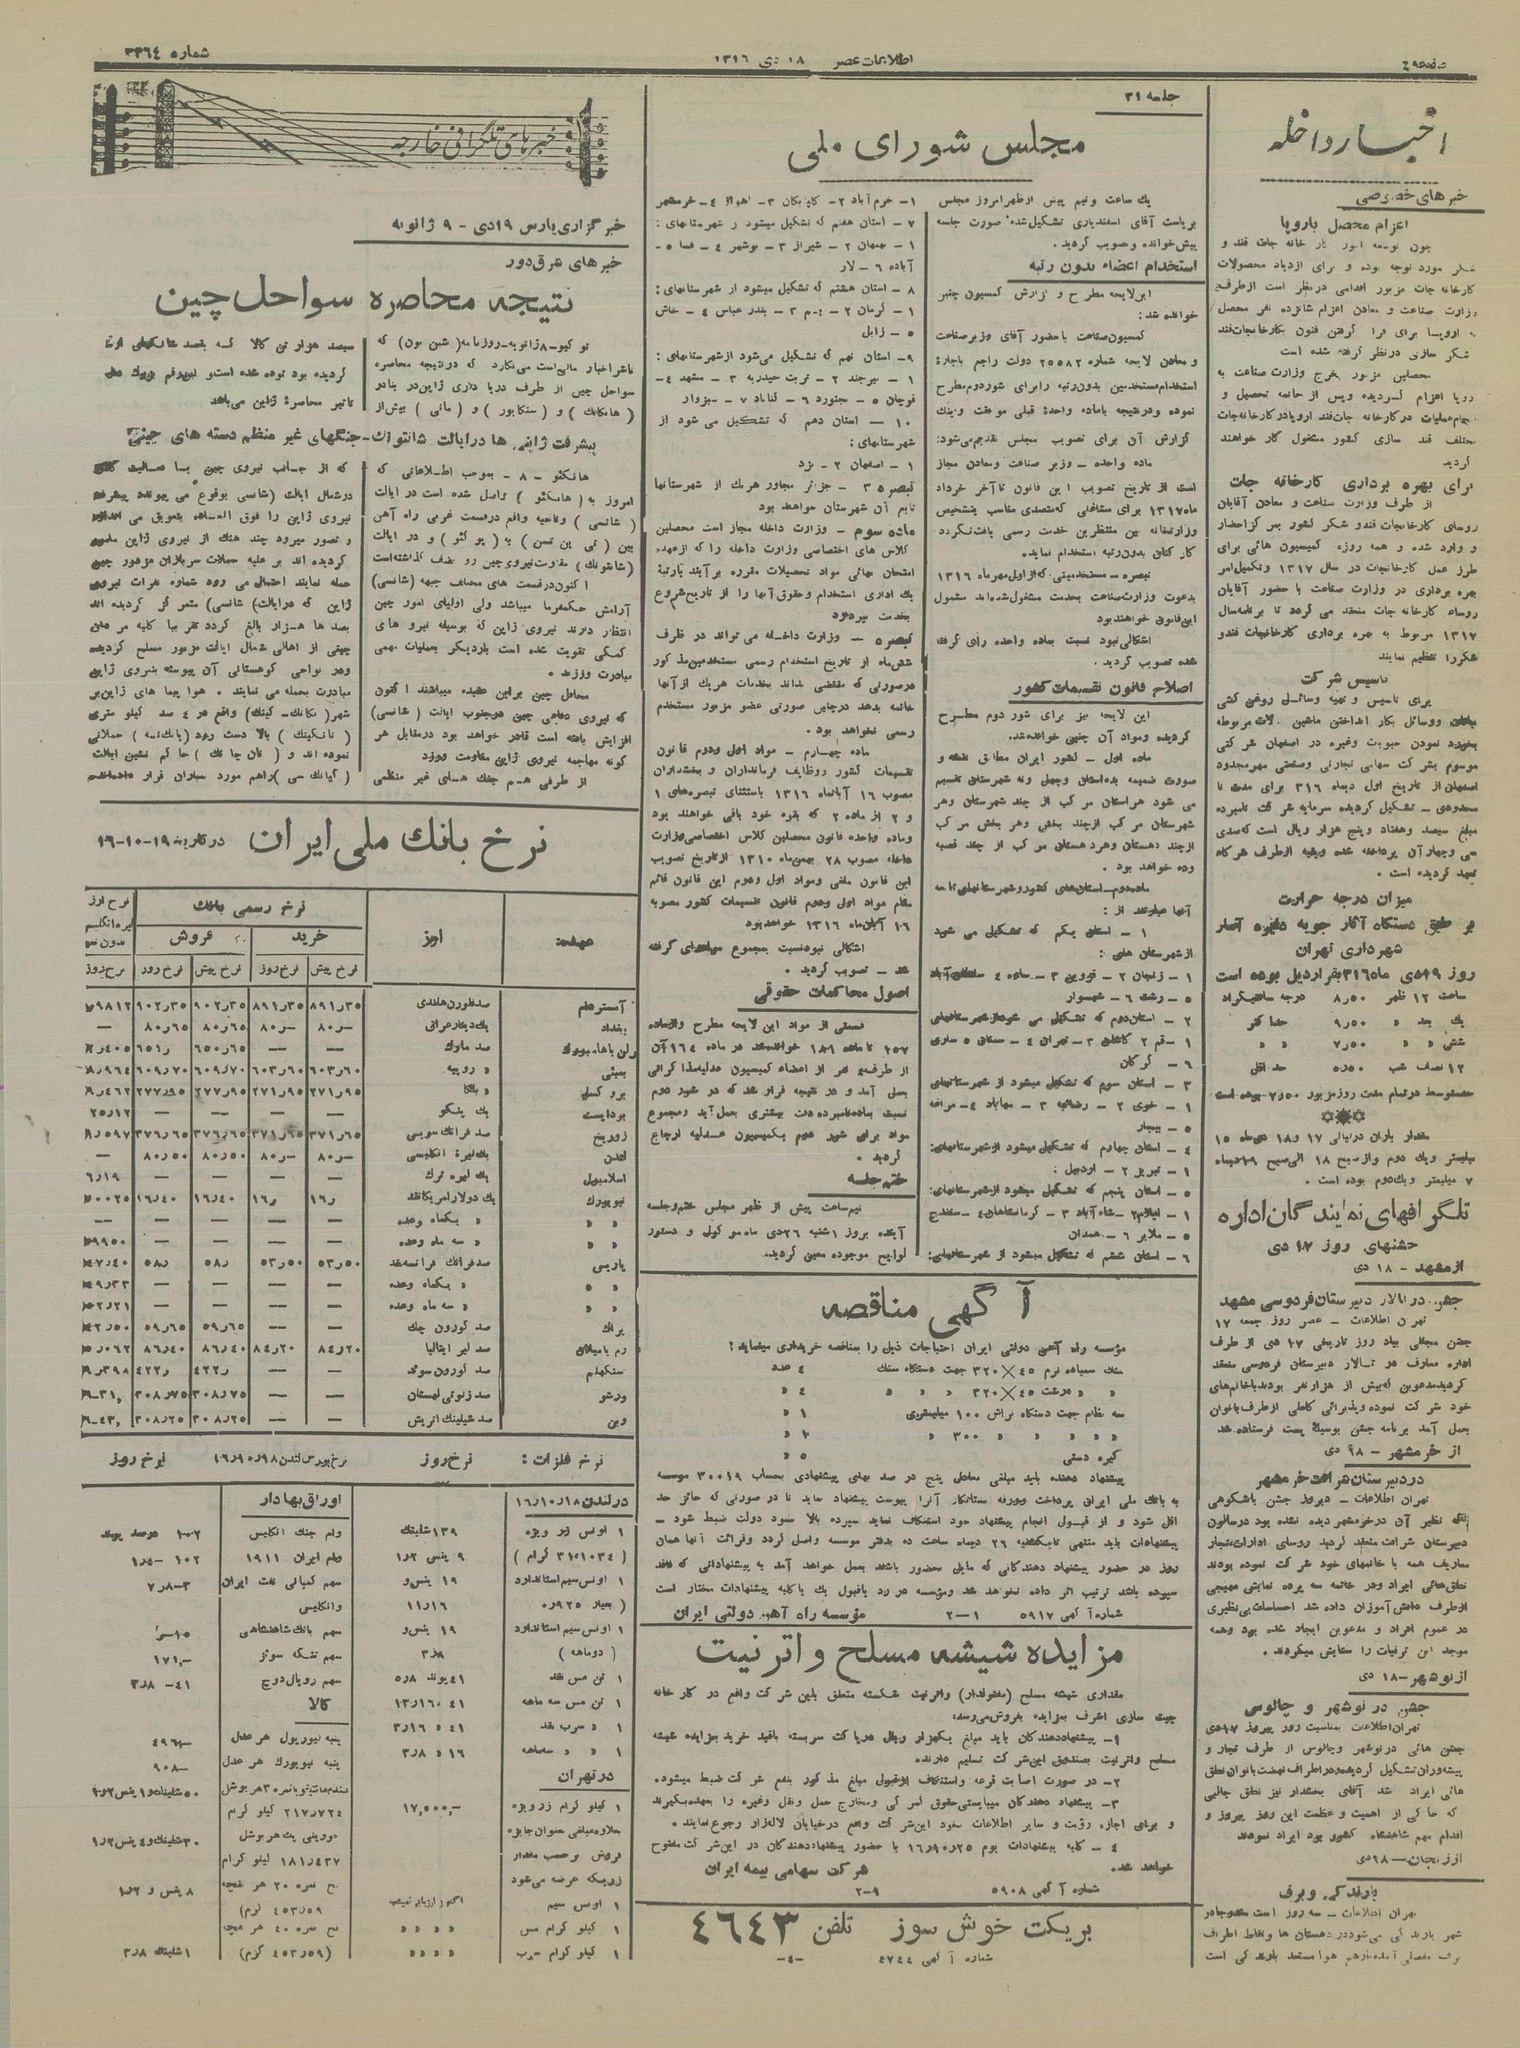 صفحه ۴
اطلاعات عصر ۱۸ دی ۱۳۱۶
شماره ۳۳۶۴
اخبار داخله
خبرهای خصوصی
اعزام محصل باروپا
کارخانه جات مزبور اقدامی در نظر است از طرف
وزارت صناعت و معادن اعزام شانزده نفر محصل
به اروپا برای فرا گرفتن فنون بکارخانجات قند
شکر سازی در نظر گرفته شده است
محصلین مزبور بخرج وزارت صناعت به
مختلف قند سازی کشور مشغول کار خواهند
گردید
برای بهره برداری کارخانه جات
از طرف وزارت صناعت و معادن آقایان
روسای کارخانه جات قند و شکر کشور بمرکز احضار
و وارد شده و همه روزه کمیسیون هائی برای
طرز عمل کارخانجات در سال ۱۳۱۷ و تکمیل امر
بهره برداری در وزارت صناعت با حضور آقایان
روساء کارخانه جات منعقد می گردد تا برنامه سال
۱۳۱۷ مربوط به بهره برداری کارخانجات قند و
شکر را تنظیم نمایند
تاسیس شرکت
برای تاسیس و تهیه وسائل روغن کشی
موسوم بشرکت سهامی تجارتی و صنعتی مهر محدود
اصفهان از تاریخ اول دیماه ۳۱۶ برای مدت نا
محدودی - تشکیل گردیده سرمایه شرکت نامبرده
مبلغ سیصد و هفتاد و پنج هزار ریال است که صدی
سی و چهار آن پرداخته شده و بقیه از طرف شرکاء
تعهد گردیده است .
میزان درجه حرارت
بر طبق دستگاه آثار جویه دایره آمار
شهرداری تهران
روز ۱۹ دی ماه ۳۱۶ بقرار ذیل بوده است
ساعت ۱۲ ظهر ۸٫۵۰ درجه سانتیگراد
یک بعد » ۹٫۵۰ حداکثر
شش » » ۷٫۵۰ » »
۱۲ نصف شب ۵٫۵۰ حداقل
حد متوسط در تمام مدت روز مزبور ۷٫۵۰ بوده است
مقدار باران در لیالی ۱۷ و ۱۸ دی ماه ۱۵
میلیمتر و یک دوم و از صبح ۱۸ الی صبح ۱۹ دیماه
۷ میلیمتر و یک دوم بوده است .
تلگرافهای نمایندگان اداره
جشنهای روز ۱۷ دی
از مشهد - ۱۸ دی
جشن در تالار دبیرستان فردوسی مشهد
تهران اطلاعات - عصر روز جمعه ۱۷
جشن مجللی بیاد روز تاریخی ۱۷ دی از طرف
اداره معارف در تالار دبیرستان فردوسی منعقد
گردید مدعوین که بیش از هزار نفر بودند با خانم‌های
خود شرکت نموده و پذیرائی کاملی از طرف بانوان
بعمل آمد برنامه جشن بوسیله پست فرستاده شد
از خرمشهر - ۱۸ دی
در دبیرستان شرافت خرمشهر
تهران اطلاعات - دیروز جشن باشکوهی
که نظیر آن در خرمشهر دیده نشده بود در سالون
دبیرستان شرافت منعقد گردید روسای ادارات تجار
معاریف همه با خانمهای خود شرکت نموده بودند
نطق‌هائی ایراد و در خاتمه سه پرده نمایش مهیجی
از طرف دانش آموزان داده شد احساسات بی نظیری
در عموم افراد و مدعوین ایجاد شده بود و همه
موجد این ترقیات را ستایش میکردند .
از نوشهر - ۱۸ دی
جشن در نوشهر و چالوس
تهران اطلاعات بمناسبت روز پیروز ۱۷ دی
جشن هائی در نوشهر و چالوس از طرف تجار و
پیشه وران تشکیل گردیده و در اطراف نهضت بانوان نطق
هائی ایراد شد آقای بخشدار نیز نطق جالبی
که حاکی از اهمیت و عظمت این روز پیروز و
اقدام مهم شاهنشاه کشور بود ایراد نمودند
از زنجان - ۱۸ دی
بارندگی و برف
تهران اطلاعات - سه روز است متدرجا در
شهر بارندگی می شود در دهستان ها و نقاط اطراف
برف مفصلی آمده باز هم هوا مستعد بارندگی است
جلسه ۳۱
مجلس شورای ملی
یک ساعت و نیم پیش از ظهر امروز مجلس
بریاست آقای اسفندیاری تشکیل شده صورت جلسه
پیش خوانده و تصویب گردید .
استخدام اعضاء بدون رتبه
این لایحه مطرح و گزارش کمیسیون چنین
خوانده شد :
کمیسیون صناعت با حضور آقای وزیر صناعت
و معادن لایحه شماره ۲۵۵۸۲ دولت راجع باجازه
استخدام مستخدمین بدون رتبه را برای شور دوم مطرح
نموده و در نتیجه با ماده واحده قبلی موافقت و اینک
گزارش آن برای تصویب مجلس تقدیم می‌شود :
ماده واحده - وزیر صناعت و معادن مجاز
است از تاریخ تصویب این قانون تا آخر خرداد
ماه ۱۳۱۷ برای مشاغلی که متصدی مناسب بتشخیص
وزارتخانه بین منتظرین خدمت رسمی یافت نگردد
کارکنان بدون رتبه استخدام نماید .
تبصره - مستخدمینی که از اول مهر ماه ۱۳۱۶
بدعوت وزارت صناعت بخدمت مشغول شده‌اند مشمول
این قانون خواهند بود
اشکالی نبود نسبت بماده واحده رأی گرفته
شده تصویب گردید .
اصلاح قانون تقسیمات کشور
این لایحه نیز برای شور دوم مطرح
گردیده و مواد آن چنین خوانده شد .
ماده اول - کشور ایران مطابق نقشه و
صورت ضمیمه بده استان و چهل و نه شهرستان تقسیم
می شود هر استان مرکب از چند شهرستان و هر
شهرستان مرکب از چند بخش و هر بخش مرکب
از چند دهستان و هر دهستان مرکب از چند قصبه
و ده خواهد بود .
ماده دوم - استان‌های کشور و شهرستانهای تابعه
آنها عبارتند از :
۱ - استان یکم که تشکیل می شود
از شهرستان های :
۱ - زنجان ۲ - قزوین ۳ - ساوه ۴ - سلطان آباد
۵ - رشت ۶ - شهسوار
۲ - استان دوم که تشکیل می شود از شهرستانهای
۱ - قم ۲ - کاشان ۳ - تهران ۴ - سمنان ۵ - ساری
۶ - گرگان
۳ - استان سوم که تشکیل میشود از شهرستانهای
۱ - خوی ۲ - رضائیه ۳ - مهاباد ۴ - مراغه
۵ - بیجار
۴ - استان چهارم که تشکیل میشود از شهرستانهای
۱ - تبریز ۲ - اردبیل :
۵ - استان پنجم که تشکیل میشود از شهرستانهای :
۱ - ایلام ۲ - شاه آباد ۳ - کرمانشاهان ۴ - سنندج
۵ - ملایر ۶ - همدان
۶ - استان ششم که تشکیل میشود از شهرستانهای :
۱ - خرم آباد ۲ - گلپایگان ۳ - اهواز ۴ - خرمشهر
۷ - استان هفتم که تشکیل میشود از شهرستانهای :
۱ - بهبهان ۲ - شیراز ۳ - بوشهر ۴ - فسا ۵ -
آباده ۶ - لار
۸ - استان هشتم که تشکیل میشود از شهرستانهای :
۱ - کرمان ۲ - بم ۳ - بندر عباس ۴ - خاش
۵ - زابل
۹ - استان نهم که تشکیل می‌شود از شهرستانهای :
۱ - بیرجند ۲ - تربت حیدریه ۳ - مشهد ۴ -
قوچان ۵ - بجنورد ۶ - گناباد ۷ - سبزوار
۱۰ - استان دهم که تشکیل می شود از
شهرستانهای :
۱ - اصفهان ۲ - یزد
تبصره ۳ - جزائر مجاور هریک از شهرستانها
تابع آن شهرستان خواهد بود
ماده سوم - وزارت داخله مجاز است محصلین
کلاس های اختصاصی وزارت داخله را که از عهده
امتحان نهائی مواد تحصیلات مقرره بر آیند با رتبه
یک اداری استخدام و حقوق آنها را از تاریخ شروع
بخدمت بپردازد
تبصره - وزارت داخله می تواند در ظرف
شش ماه از تاریخ استخدام رسمی مستخدمین مذکور
در صورتی که مقتضی بداند بخدمات هریک از آنها
خاتمه بدهد در چنین صورتی عضو مزبور مستخدم
رسمی نخواهد بود .
ماده چهارم - مواد اول و دوم قانون
تقسیمات کشور و وظایف فرمانداران و بخشداران
مصوب ۱۶ آبانماه ۱۳۱۶ باستثنای تبصره‌های ۱
و ۲ از ماده ۲ که بقوه خود باقی خواهند بود
و ماده واحده قانون محصلین کلاس اختصاصی وزارت
داخله مصوب ۲۸ بهمن ماه ۱۳۱۰ از تاریخ تصویب
این قانون ملغی و مواد اول و دوم این قانون قائم
مقام مواد اول و دوم قانون تقسیمات کشور مصوبه
۱۶ آبان ماه ۱۳۱۶ خواهد بود
اشکالی نبود نسبت بمجموع مواد رای گرفته
شد - تصویب گردید .
اصول محاکمات حقوقی
قسمتی از مواد این لایحه مطرح و از ماده
بعمل آمد و در نتیجه قرار شد که در شور دوم
نسبت بماده نامبرده دقت بیشتری بعمل آید و مجموع
مواد برای شور دوم بکمیسیون عدلیه ارجاع
گردید .
ختم جلسه
نیم ساعت پیش از ظهر مجلس ختم و جلسه
آینده بروز ۱ شنبه ۲۶ دی ماه موکول و دستور
لوایح موجوده معین گردید .
آگهی مناقصه
مؤسسه راه آهن دولتی ایران احتیاجات ذیل را بمناقصه خریداری مینماید :
سنگ سمباده نرم ۴۵ × ۳۲۰ جهت دستگاه سنگ ۴ عدد
» » درشت ۴۵ × ۳۲۰ » » » ۴ »
سه نظام جهت دستگاه تراش ۱۰۰ میلیمتری ۱ »
» » » » ۳۰۰ » ۱ »
گیره دستی ۵ »
پیشنهاد دهنده باید مبلغی معادل پنج در صد بهای پیشنهادی بحساب ۳۰۰۱۹ موسسه
روز در حضور پیشنهاد دهندگانی که مایل بحضور باشند بعمل خواهد آمد به پیشنهاداتی که فاقد
سپرده باشند ترتیب اثر داده نخواهد شد و مؤسسه در رد یا قبول یک یا کلیه پیشنهادات مختار است
شماره آگهی ۵۹۱۷ ۱-۲ مؤسسه راه آهن دولتی ایران
مزایده شیشه مسلح و اترنیت
مقداری شیشه مسلح (مفتولدار) و اترنیت شکسته متعلق باین شرکت واقع در کارخانه
چیت سازی اشرف بمزایده بفروش می‌رسد :
۱ - پیشنهاد دهندگان باید مبلغ یکهزار ریال در پاکت سربسته باقید خرید بمزایده شیشه
مسلح و اترنیت بصندوق این شرکت تسلیم دارند .
۲ - در صورت اصابت قرعه و استنکاف از قبول مبلغ مذکور بنفع شرکت ضبط میشود .
۳ - پیشنهاد دهندگان میبایستی حقوق گمرکی و مخارج حمل و نقل و غیره را بعهده بگیرند
و برای اجازه رؤیت و سایر اطلاعات بخود این شرکت واقع در خیابان لاله‌زار رجوع نمایند .
۴ - کلیه پیشنهادات یوم ۱۶٫۱۰٫۲۵ با حضور پیشنهاد دهندگان در این شرکت مفتوح
خواهد شد .
شرکت سهامی بیمه ایران
شماره آگهی ۵۹۰۸ ۲-۹
بریکت خوش سوز تلفن ۴۶۴۳
شماره آگهی ۴۷۴۴ -۴-
خبرهای تلگرافی خارجه
خبرگزاری پارس ۱۹ دی - ۹ ژانویه
خبرهای شرق دور
نتیجه محاصره سواحل چین
توکیو - ۸ ژانویه - روزنامه (شین بون) که
ناشر اخبار مالیه است می‌نگارد که در نتیجه محاصره
سواحل چین از طرف دریا داری ژاپن در بنادر
(هانکانک) و (سنگاپور) و (مانی) بیش از
سیصد هزار تن کالا که بقصد شانگهای بارگیری
گردیده بود توده شده است و این رقم بزرگ
تاثیر محاصره ژاپن می‌باشد
پیشرفت ژاپنی ها در ایالت شانتونک - جنگهای غیر منظم دسته های چینی
هانکئو - ۸ - بموجب اطلاعاتی که
امروز به (هانکئو) واصل شده است در ایالت
(شانسی) و ناحیه واقع در قسمت غربی راه آهن
(شانتونک) مقاومت نیروی چین رو بضعف گذاشته است
اکنون در قسمت های مختلف جبهه (شانسی)
آرامش حکمفرما میباشد ولی اولیای امور چین
انتظار دارند نیروی ژاپن که بوسیله نیرو های
کمکی تقویت شده است بار دیگر بعملیات مهمی
مبادرت ورزند .
محافل چین بر این عقیده میباشند اکنون
که نیروی دفاعی چین در جنوب ایالت (شانسی)
افزایش یافته است قادر خواهد بود در مقابل هر
گونه مهاجمه نیروی ژاپن مقاومت ورزد
از طرفی هم جنگ های غیر منظمی
که از جانب نیروی چین با فعالیت کامل
در شمال ایالت (شانسی) بوقوع می پیوندد پیشرفت
نیروی ژاپن را فوق العاده بتعویق می اندازد
و تصور میرود چند هنگ از نیروی ژاپن مامور
گردیده اند بر علیه حملات سربازان مزبور چین
حمله نمایند احتمال می رود شماره نفرات نیروی
ژاپن که در ایالت (شانسی) متمرکز گردیده اند
بصد ها هزار بالغ گردد تقریبا کلیه مردمان
چینی از اهالی شمال ایالت مزبور مسلح گردیده
و در نواحی کوهستانی آن پیوسته بنیروی ژاپن
مبادرت بحمله می نمایند . هوا پیما های ژاپن بر
نموده اند و (نان چانک) حاکم نشین ایالت
(کیانک سی) را هم مورد بمباران قرار داده‌اند
نرخ بانک ملی ایران
در تاریخ ۱۹-۱۰-۱۶
مقصد
ارز
نرخ رسمی بانک
خرید
فروش
نرخ پیش
نرخ روز
نرخ پیش
نرخ روز
آمستردام صد فلورن هلندی ۸۹۱٫۳۵ ۸۹۱٫۳۵ ۹۰۲٫۳۵ ۹۰۲٫۳۵
بغداد یک دینار عراقی ۸۰٫- ۸۰٫- ۸۰٫۶۵ ۸۰٫۶۵ —
برلن یا هامبورگ صد مارک — — ۶۵۰٫۶۵ ۶۵۱٫
بمبئی » روپیه ۶۰۳٫۶۰ ۶۰۳٫۶۰ ۶۰۹٫۷۰ ۶۰۹٫۷۰
بروکسل » بلگا ۲۷۱٫۹۵ ۲۷۱٫۹۵ ۲۷۷٫۹۵ ۲۷۷٫۹۵
بوداپست یک پنگو — — — — ۲۵٫۱۲
زوریخ صد فرانک سویسی ۳۷۱٫۶۵ ۳۷۱٫۶۵ ۳۷۶٫۶۵ ۳۷۶٫۶۵
لندن یک لیره انگلیسی ۸۰٫- ۸۰٫- ۸۰٫۵۰ ۸۰٫۵۰ —
اسلامبول یک لیره ترک ۶٫۱۹
نیویورک یک دولار امریکا نقد ۱۶٫ ۱۶٫ ۱۶٫۴۰ ۱۶٫۴۰
» » » یکماه وعده — — — — —
» » » سه ماه وعده — — — —
پاریس صد فرانک فرانسه نقد ۵۳٫۵۰ ۵۳٫۵۰ ۵۸٫ ۵۸٫
» » » یکماه وعده — — — —
» » » سه ماه وعده — — — —
پراگ صد کورون چک — — ۵۹٫۶۵ ۵۹٫۶۵
رم یا میلان صد لیر ایتالیا ۸۴٫۲۰ ۸۴٫۲۰ ۸۶٫۴۰ ۸۶٫۴۰
ستکهلم صد کورون سوئد — — ۴۲۲٫ ۴۲۲٫
ورشو صد زلوتی لهستان — — ۳۰۸٫۷۵ ۳۰۸٫۷۵
وین صد شیلینگ اتریش — — ۳۰۸٫۲۵ ۳۰۸٫۲۵
نرخ فلزات : نرخ روز
در لندن ۱۶٫۱۰٫۱۸
۱ اونس زر ویژه ۱۳۹ شلینک
(۳۱٫۱۰۳۴ گرام) ۹ پنس ۱٫۲
۱ اونس سیم استاندارد ۱۹ پنس و
(عیار ۹۲۵٫۰) ۱۱٫۱۶
۱ اونس سیم استاندارد ۱۹ پنس و
(دوماهه) ۳٫۸
۱ تن مس نقد ۴۱ پوند ۵٫۸
۱ تن مس سه ماهه ۴۱ » ۱۳٫۱۶
۱ » سرب نقد
۱ » » سه‌ماهه ۱۶ » ۳٫۸
در تهران
۱ کیلو گرام زر ویژه ۱۷٫۰۰۰٫-
بعلاوه مبلغی بعنوان جایزه
فروش بر حسب مقدار
زریکه عرضه می‌شود
۱ اونس سیم
۱ کیلو گرام مس » » » »
۱ کیلو گرام سرب » » » »
نرخ بورس لندن ۱۶٫۱۰٫۱۸ نرخ روز
اوراق بهادار
وام جنگ انگلیس
وام ایران ۱۹۱۱
سهم کمپانی نفت ایران
و انگلیس
سهم بانک شاهنشاهی
سهم تنگه سوئز ۱۷۱٫-
سهم رویال دوچ ۴۱- ۳٫۸
کالا
پنبه لیورپول هر عدل
پنبه نیویورک هر عدل ۹۰۸-
۲۱۷٫۷۲۴ کیلو گرام
۱۸۱٫۴۳۷ کیلو گرام
نخ نمره ۲۰ هر بقچه ۸ پنس و ۱٫۲
(۴۵۳٫۵۹ گرم)
نخ نمره ۴۰ هر بقچه
(۴۵۳٫۵۹ گرم) ۱ شلینک ۳٫۸